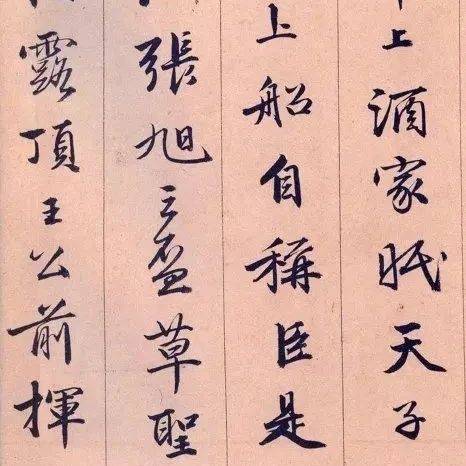 上酒家眠天子
上船自稱臣是
張旭三盃草聖
露頂王公前揮